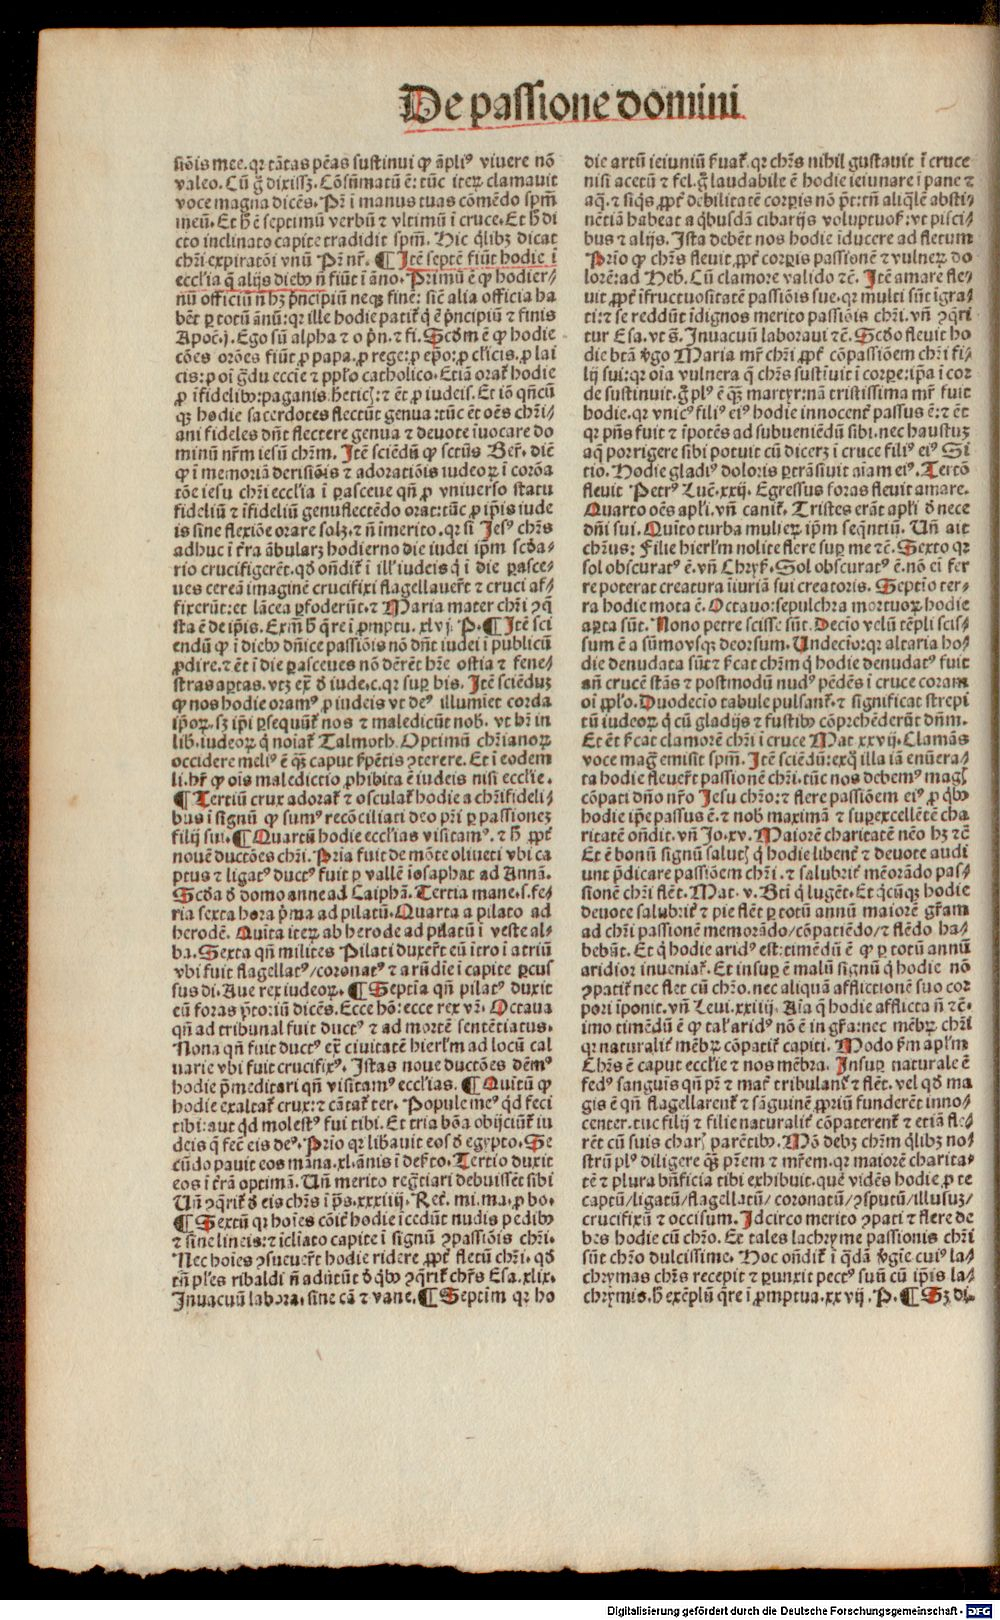 De passione domini
siōis mee. qr tātas pēas sustinui ꝙ āpliꝰ viuere nō
valeo. Cū g̃ dixissꝫ. Cōsūmatū ē: tūc iteꝝ clamauit
voce magna dicēs. Pr̄ ī manus tuas cōmēdo spm̄
meū. Et h̄ ē septimū verbū ⁊ vltimū ī cruce. Et h̄ di
cto inclinato capite tradidit spm̄. Hic q̄libꝫ dicat
chr̄i expiratōi vnū Pr̄ nr̄. ¶ Itē septē fiūt hodie ī
eccl'ia q̄ alijs diebꝰ nō fiūt ī āno. Primū ē ꝙ hodier-
nū officiū nō hꝫ p̄ncipiū neqꝫ finē: siē alia officia ha
bēt ꝑ totū ānū: qr ille hodie patit̄ q̄ ē p̄ncipiū ⁊ finis
Apoc̄. j. Ego sū alpha ⁊ o p̄n. ⁊ fi. Scd̄m ē ꝙ hodie
cōes orōes fiūt ꝓ papa. ꝓ rege: ꝓ ep̄o: ꝓ cl'icis. ꝓ lai
cis: ꝓ oī g̃du eccīe ⁊ pp̄lo catholico. Etiā orat̄ hodie
ꝓ ifidelibꝰ: paganis. h̄etic̄: ⁊ ēt ꝓ iudeis. Et iō qn̄cū
qꝫ hodie sacerdotes flectūt genua: tūc ēt oēs chr̄i-
ani fideles dn̄t flectere genua ⁊ deuote iuocare do
minū nr̄m iesū chr̄m. Itē sciēdū ꝙ sctūs Ber̄. diē
ꝙ ī memoriā derisiōis ⁊ adoratiōis iudeoꝝ ī corōa
tōe iesu chr̄i eccl'ia ī ꝑasceue qn̄ ꝓ vniuerso statu
fideliū ⁊ ifideliū genuflectēdo orat: tūc ꝓ ip̄is iude
is sine flexiōe orare solꝫ. ⁊ nō īmerito. qr si Jesꝰ chr̄s
adhuc ī t̄ra ābularꝫ hodierno die iudei ip̄m scd̄a-
rio crucifigerēt. qd̄ on̄dit̄ ī ill' iudeis q̄ ī die ꝑasce-
ues cereā imaginē crucifixi flagellauer̄t ⁊ cruci af-
fixerūt: et lācea ꝑfoderūt. ⁊ Maria mater chr̄i ꝯq̄
sta ē de ip̄is. Exm̄ h̄ q̄re ī ꝓmptu. xlvj. P. ¶ Itē sci
endū ꝙ ī diebꝰ dn̄ice passiōis nō dn̄t iudei ī publicū
ꝓdire. ⁊ ēt ī die ꝑasceues nō dēbēt hr̄e ostia ⁊ fene-
stras aꝑtas. vtꝫ ex̄ d̄ iude. c. qr sup̄ his. Itē sciēduꝫ
ꝙ nos hodie oram̄ꝰ ꝓ iudeis vt deꝰ illumīet corda
ip̄oꝝ. sꝫ ip̄i ꝑsequūt̄ nos ⁊ maledicūt nob̄. vt hr̄ in
lib. iudeoꝝ q̄ noīat̄ Talmoth. Optimū chr̄ianoꝝ
occidere meliꝰ ē qꝫ caput ẜpētis ꝯterere. Et ī eodem
li. hr̄ ꝙ oīs maledictio ꝓhibita ē iudeis nisi eccl'ie.
¶ Tertiū crux adorat̄ ⁊ osculat̄ hodie a chr̄ifideli-
bus ī signū ꝙ sumꝰ recōciliati deo pr̄i ꝑ passionez
filij sui. ¶ Quartū hodie eccl'ias visitamꝰ. ⁊ h̄ ꝓpt̄
nouē ductōes chr̄i. Prīa fuit de mōte oliueti vbi ca
ptus ⁊ ligatꝰ ductꝰ fuit ꝑ vallē iosaphat ad Annā.
Scd̄a d̄ domo anne ad Caiphā. Tertia mane. s. fe-
ria sexta hora p̄ma ad pilatū. Quarta a pilato ad
herodē. Quīta iteꝝ ab herode ad pilatū ī veste al-
ba. Sexta qn̄ milites Pilati duxer̄t eū ītro ī atriū
vbi fuit flagellatꝰ/coronatꝰ ⁊ arūdīe ī capite ꝑcus
sus dī. Aue rex iudeoꝝ. ¶ Septīa qn̄ pilatꝰ duxit
eū foras p̄toriū dicēs. Ecce hō: ecce rex vr̄. Octaua
qn̄ ad tribunal fuit ductꝰ ⁊ ad mortē sentētiatus.
Nona qn̄ fuit ductꝰ ex̄ ciuitatē hierl'm ad locū cal
uarie vbi fuit crucifixꝰ. Istas noue ductōes dēmꝰ
hodie p̄meditari qn̄ visitamꝰ eccl'ias. ¶ Quītū ꝙ
hodie exaltat̄ crux: ⁊ cātat̄ ter. Popule meꝰ qd̄ feci
tibi: aut qd̄ molestꝰ fui tibi. Et tria bōa obijciūt̄ iu
deis q̄ fec̄ eis deꝰ. Prīo qr lib̄auit eos d̄ egypto. Se
cūdo pauit eos māna. xl. ānis ī deẜto. Tertio duxit
eos ī t̄rā optimā. Un̄ merito reg̃tiari debuissēt sibi
Un̄ ꝯq̄rit̄ d̄ eis chr̄s ī p̄s. xxxiiij. Ret̄. mi. ma. ꝓ bo.
¶ Sextū qr hoīes cōit̄ hodie īcedūt nudis pedibꝰ
⁊ sine lineis: ⁊ īcliato capite ī signū ꝯpassiōis chr̄i.
Nec hoīes ꝯsueuer̄t hodie ridere ꝓpt̄ fletū chr̄i. qd̄
tn̄ pl'es ribaldi nō adūtūt d̄ qbꝰ ꝯq̄rit̄ chr̄s Esa. xlix.
Inuacuū labora. sine cā ⁊ vane. ¶ Septim̄ qr ho
die artū ieiuniū ẜuat̄. qr chr̄s nihil gustauit ī cruce
nisi acetū ⁊ fel. g̃ laudabile ē hodie ieiunare ī pane ⁊
aq̄. ⁊ siq̄s ꝓpt̄ debilitatē corꝑis nō pōt: tn̄ aliq̄lē absti-
nētiā habeat a qbusdā cibarijs voluptuos̄: vt pisci-
bus ⁊ alijs. Ista debēt nos hodie īducere ad fletum
Prīo ꝙ chr̄s fleuit. ꝓpt̄ corꝑis passionē ⁊ vulneꝝ do
lorē: ad Heb̄. Cū clamore valido ⁊c̄. Itē amare fle-
uit. ꝓpt̄ ifructuositatē passiōis sue. qr multi sūt īgra-
ti: ⁊ se reddūt īdignos merito passiōis chr̄i. vn̄ ꝯq̄ri
tur Esa. vt s̄. Inuacuū laboraui ⁊c̄. Scd̄o fleuit ho
die btā v̄go Maria mr̄ chr̄i ꝓpt̄ cōpassiōem chr̄i fi-
lij sui: qr oīa vulnera q̄ chr̄s sustīuit ī corꝑe: ip̄a ī cor
de sustinuit. g̃ plꝰ ē qꝫ martyr: nā tristissima mr̄ fuit
hodie. qr vnicꝰ filiꝰ eiꝰ hodie innocent̄ passus ē: ⁊ ēt
qr pn̄s fuit ⁊ īpotēs ad subueniēdū sibi. nec haustuꝫ
aq̄ porrigere sibi potuit cū dicerꝫ ī cruce filiꝰ eiꝰ Si
tio. Hodie gladiꝰ doloris ꝑtrāsiuit aīam eiꝰ. Tertō
fleuit Petrꝰ Luc̄. xxij. Egressus foras fleuit amare.
Quarto oēs apl'i. vn̄ canit̄. Tristes erāt apl'i d̄ nece
dn̄i sui. Quīto turba mulieꝝ ip̄m seq̄ntiū. Un̄ ait
chr̄us: Filie hierl'm nolite flere suꝑ me ⁊c̄. Sexto qr
sol obscuratꝰ ē. vn̄ Chrys̄. Sol obscuratꝰ ē. nō ei fer
re poterat creatura iiuriā sui creatoris. Septīo ter-
ra hodie mota ē. Octauo: sepulchra mortuoꝝ hodie
aꝑta sūt. Nono petre scisse sūt. Decīo velū tēpli scis-
sum ē a sūmo vsqꝫ deorsum. Undecīo: qr altaria ho-
die denudata sūt ⁊ ẜcat chr̄m q̄ hodie denudatꝰ fuit
an̄ crucē stās ⁊ postmodū nudꝰ pēdēs ī cruce coram
oī pp̄lo. Duodecīo tabule pulsant̄. ⁊ significat strepi
tū iudeoꝝ q̄ cū gladijs ⁊ fustibꝰ cōprehēderūt dn̄m.
Et ēt ẜcat clamorē chr̄i ī cruce Mat. xxvij. Clamās
voce mag̃ emisit spm̄. Itē sciēdū: ex q̄ illa iā enūera-
ta hodie fleuer̄t passionē chr̄i. tūc nos debemꝰ magꝭ
cōpati dn̄o nr̄o Jesu chr̄o: ⁊ flere passiōem eiꝰ ꝓ qbꝰ
hodie ip̄e passus ē. ⁊ nob̄ maximā ⁊ suꝑexcellētē cha
ritatē on̄dit. vn̄ Jo. xv. Maiorē charitatē nēo hꝫ ⁊c̄
Et ē bonū signū salutꝭ q̄ hodie libent̄ ⁊ deuote audi
unt p̄dicare passiōem chr̄i. ⁊ salubrit̄ mēorādo pas-
sionē chr̄i flēt. Mat. v. Bt̄i q̄ lugēt. Et q̄cūqꝫ hodie
deuote salubrit̄ ⁊ pie flēt ꝑ totū annū maiorē gr̄am
ad chr̄i passionē memorādo/cōpatiēdo/⁊ flēdo ha-
bebūt. Et q̄ hodie aridꝰ est: timēdū ē ꝙ ꝑ totū annū
aridior inueniat̄. Et insuꝑ ē malū signū q̄ hodie nō
ꝯpatit̄ nec flet cū chr̄o. nec aliquā afflictionē suo cor
pori īponit. vn̄ Leui. xxiij. Aīa q̄ hodie afflicta nō ⁊c̄.
imo timēdū ē ꝙ tal' aridꝰ nō ē in gr̄a: nec mēbꝝ chr̄i
qr naturalit̄ mēbꝝ cōpatit̄ capiti. Modo ẜm apl'm
Chr̄s ē caput eccl'ie ⁊ nos mēbra. Insuꝑ naturale ē
fedꝰ sanguīs qn̄ pr̄ ⁊ mat̄ tribulant̄ ⁊ flēt. vel qd̄ ma
gis ē qn̄ flagellarent̄ ⁊ sāguinē ꝓpriū funderēt inno-
center. tūc filij ⁊ filie naturalit̄ cōpaterent̄ ⁊ etiā fle-
rēt cū suis charꝭ parētibꝰ. Mō debꝫ chr̄m q̄libꝫ no-
strū plꝰ diligere qꝫ pr̄em ⁊ mr̄em. qr maiorē charita-
tē ⁊ plura bn̄ficia tibi exhibuit. quē vidēs hodie ꝓ te
captū/ligatū/flagellatū/ coronatū/ꝯsputū/illusuꝫ/
crucifixū ⁊ occisum. Idcirco merito ꝯpati ⁊ flere de
bes hodie cū chr̄o. Et tales lachryme passionis chr̄i
sūt chr̄o dulcissime. Hoc on̄dit̄ ī q̄dā v̄gīe cuiꝰ la-
chrymas chr̄s recepit ⁊ ꝑunxit pectꝰ suū cū ip̄is la-
chrymis. h̄ exēplū q̄re ī ꝓmptua. xxvij. P. ¶ Sꝫ di-
Digitalisierung gefördert durch die Deutsche Forschungsgemeinschaft - DFG